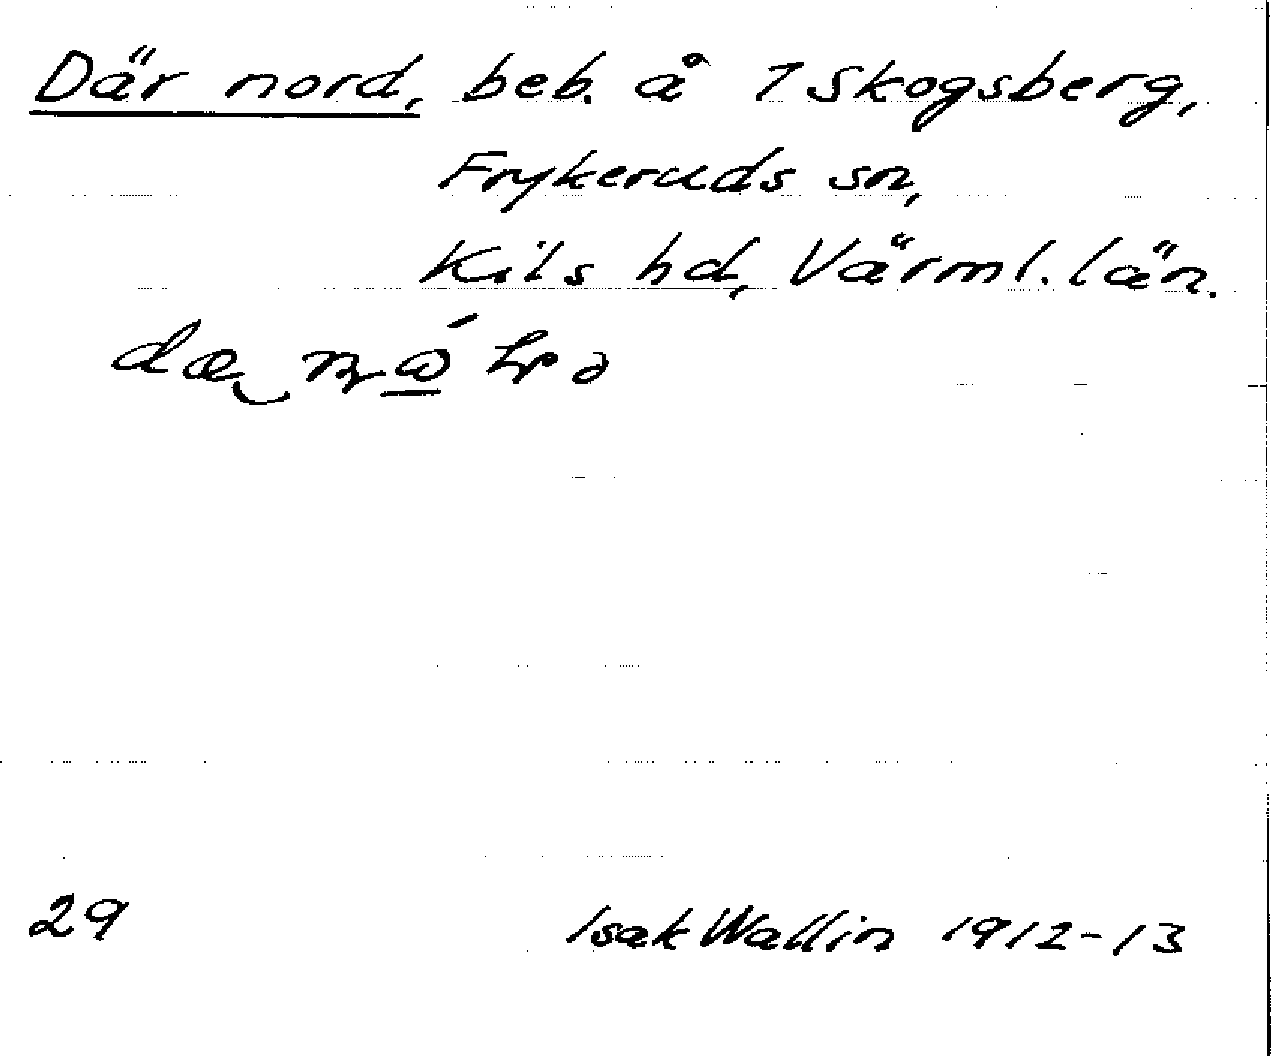 Där nord, beb. å 7 Skogsberg,
Frykeruds sn,
Kils hd, Värml. län.
29
Isak Wallin 1912-13